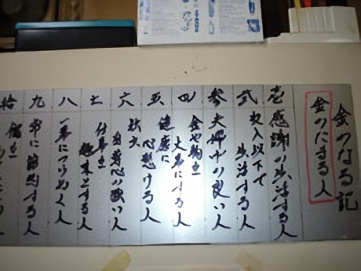 金のなる記
金のたまる人
壱 感謝の生活する人
弐 収入以下で
生活する人
参 夫婦中の良い人
四 金や物を
大事にする人
五 健康に
心懸ける人
六 独立
自尊心の強い人
七 仕事を
趣味とする人
八 一事につらぬく人
九 常に節約する人
拾